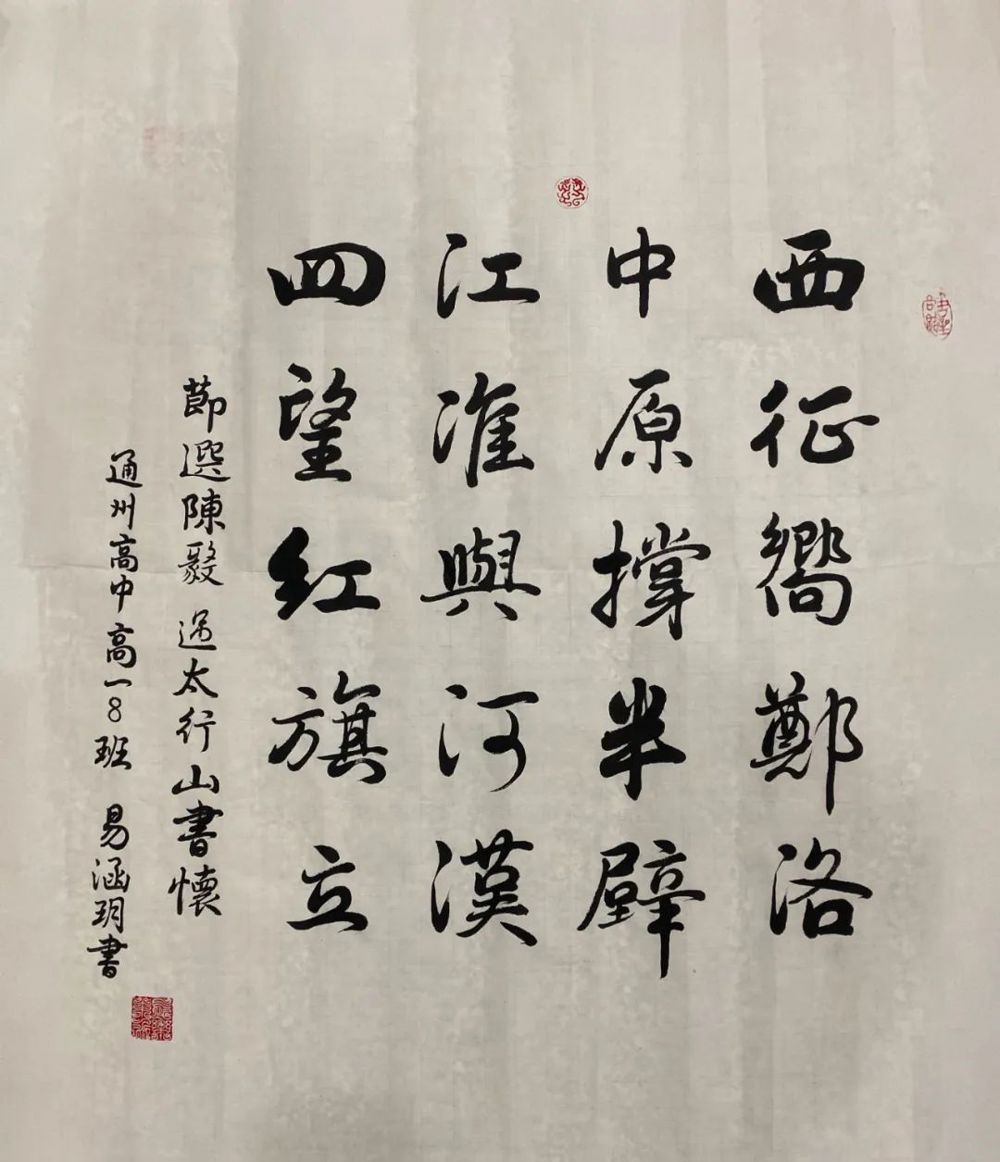 西征嚮鄭洛
中原撐半壁
江淮與河漢
四望紅旗立
節選陳毅 過太行山書懷
通州高中高一8班 易涵玥書